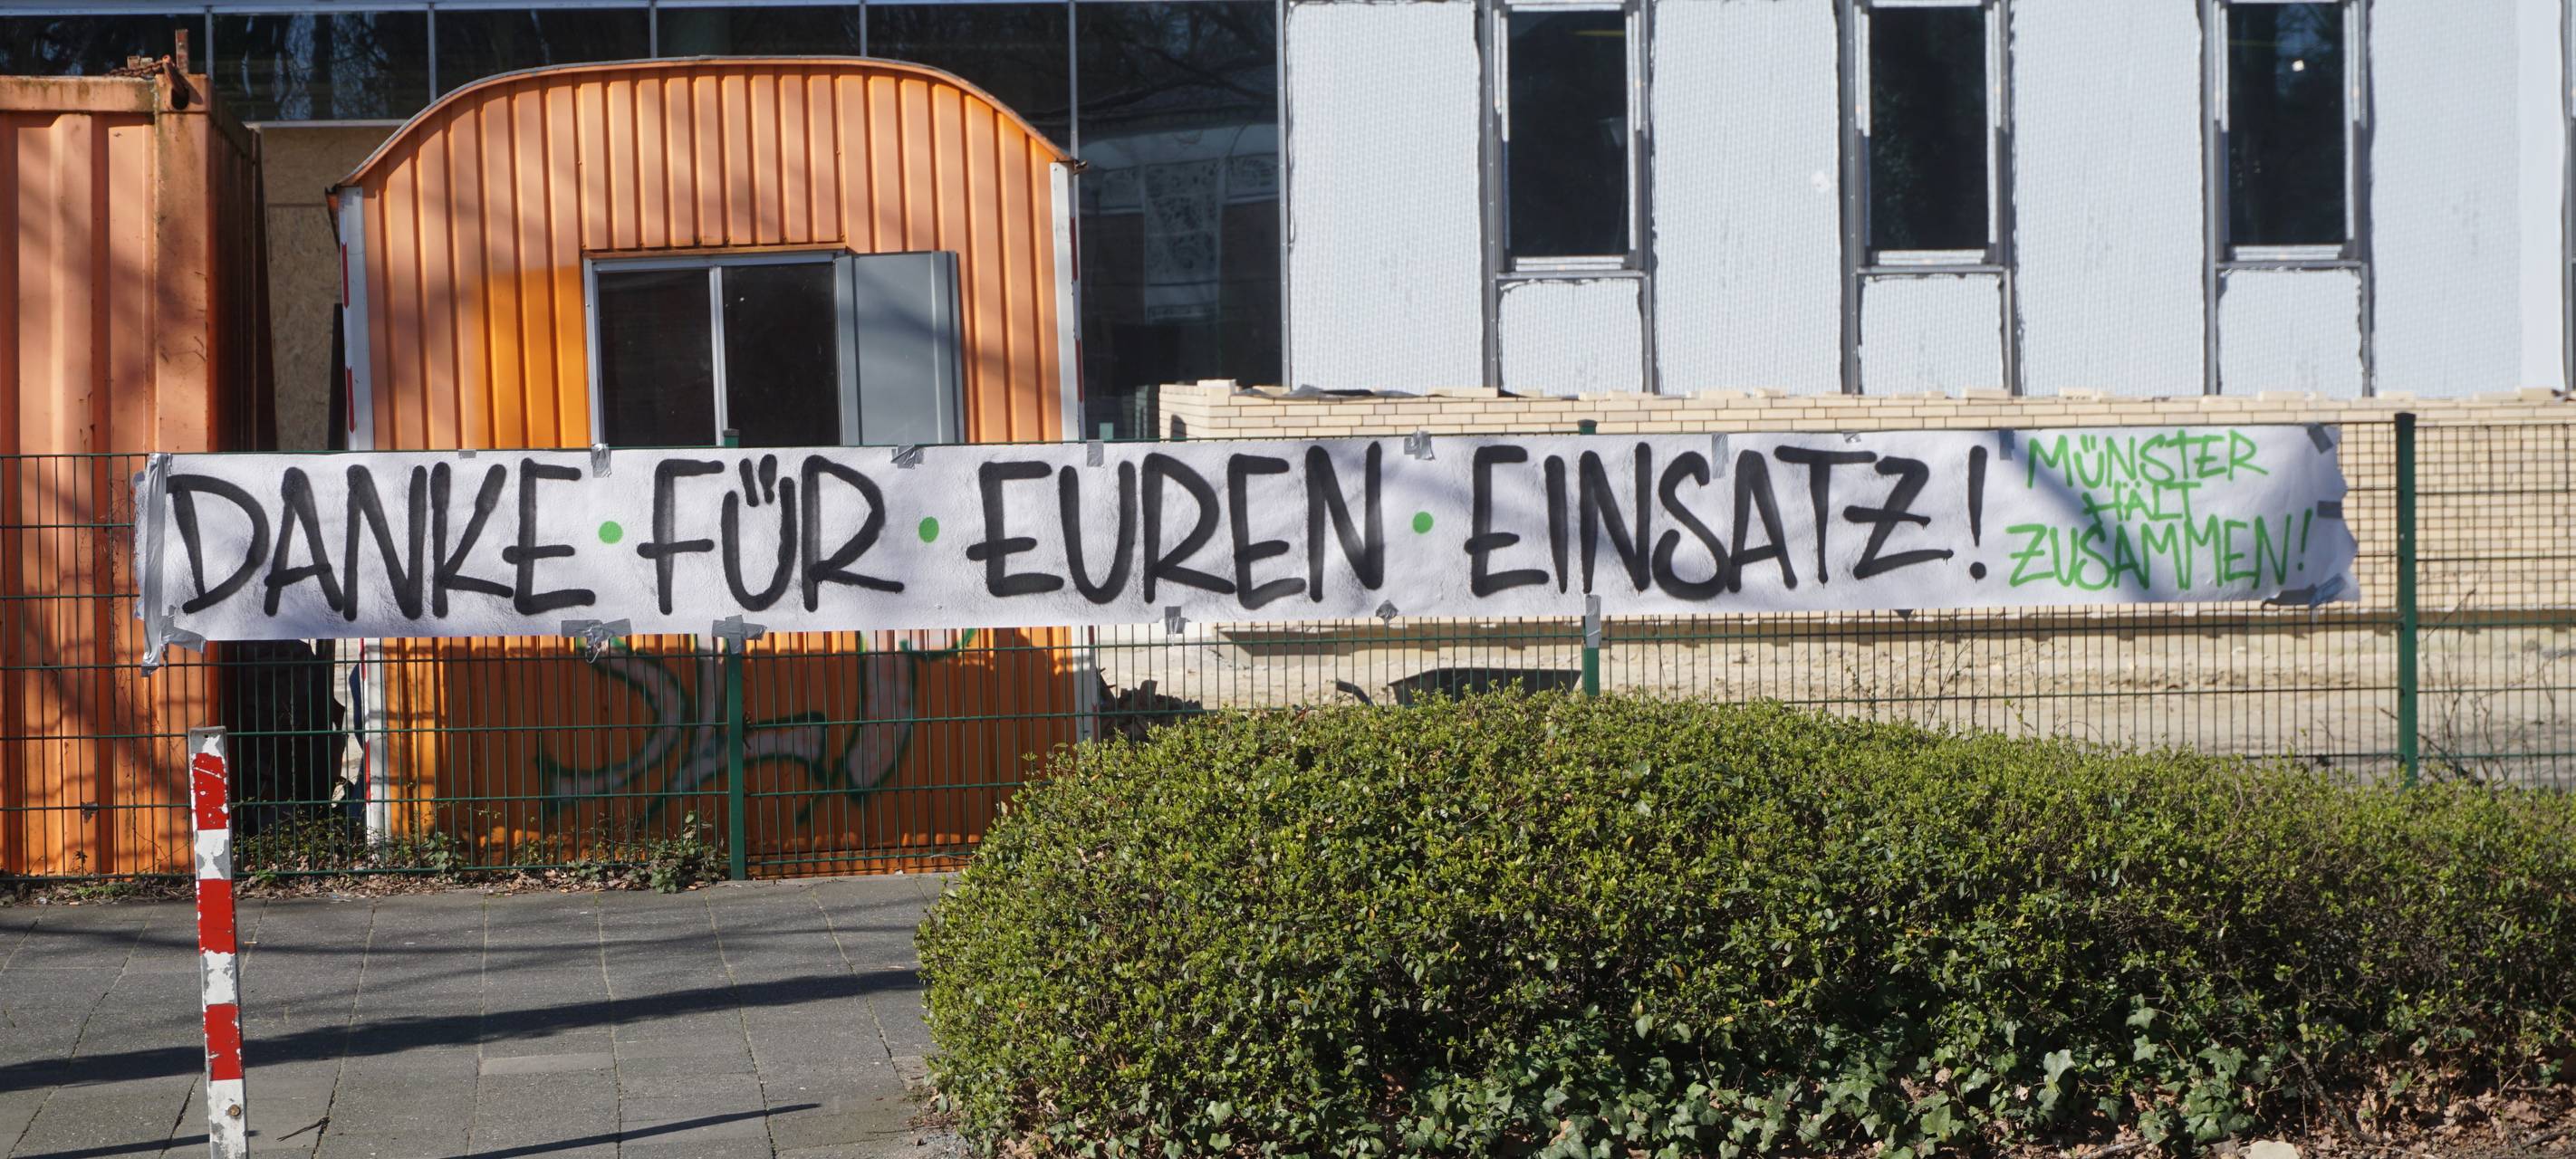 DANKE · FÜR · EUREN · EINSATZ!
MÜNSTER
HÄLT
ZUSAMMEN!